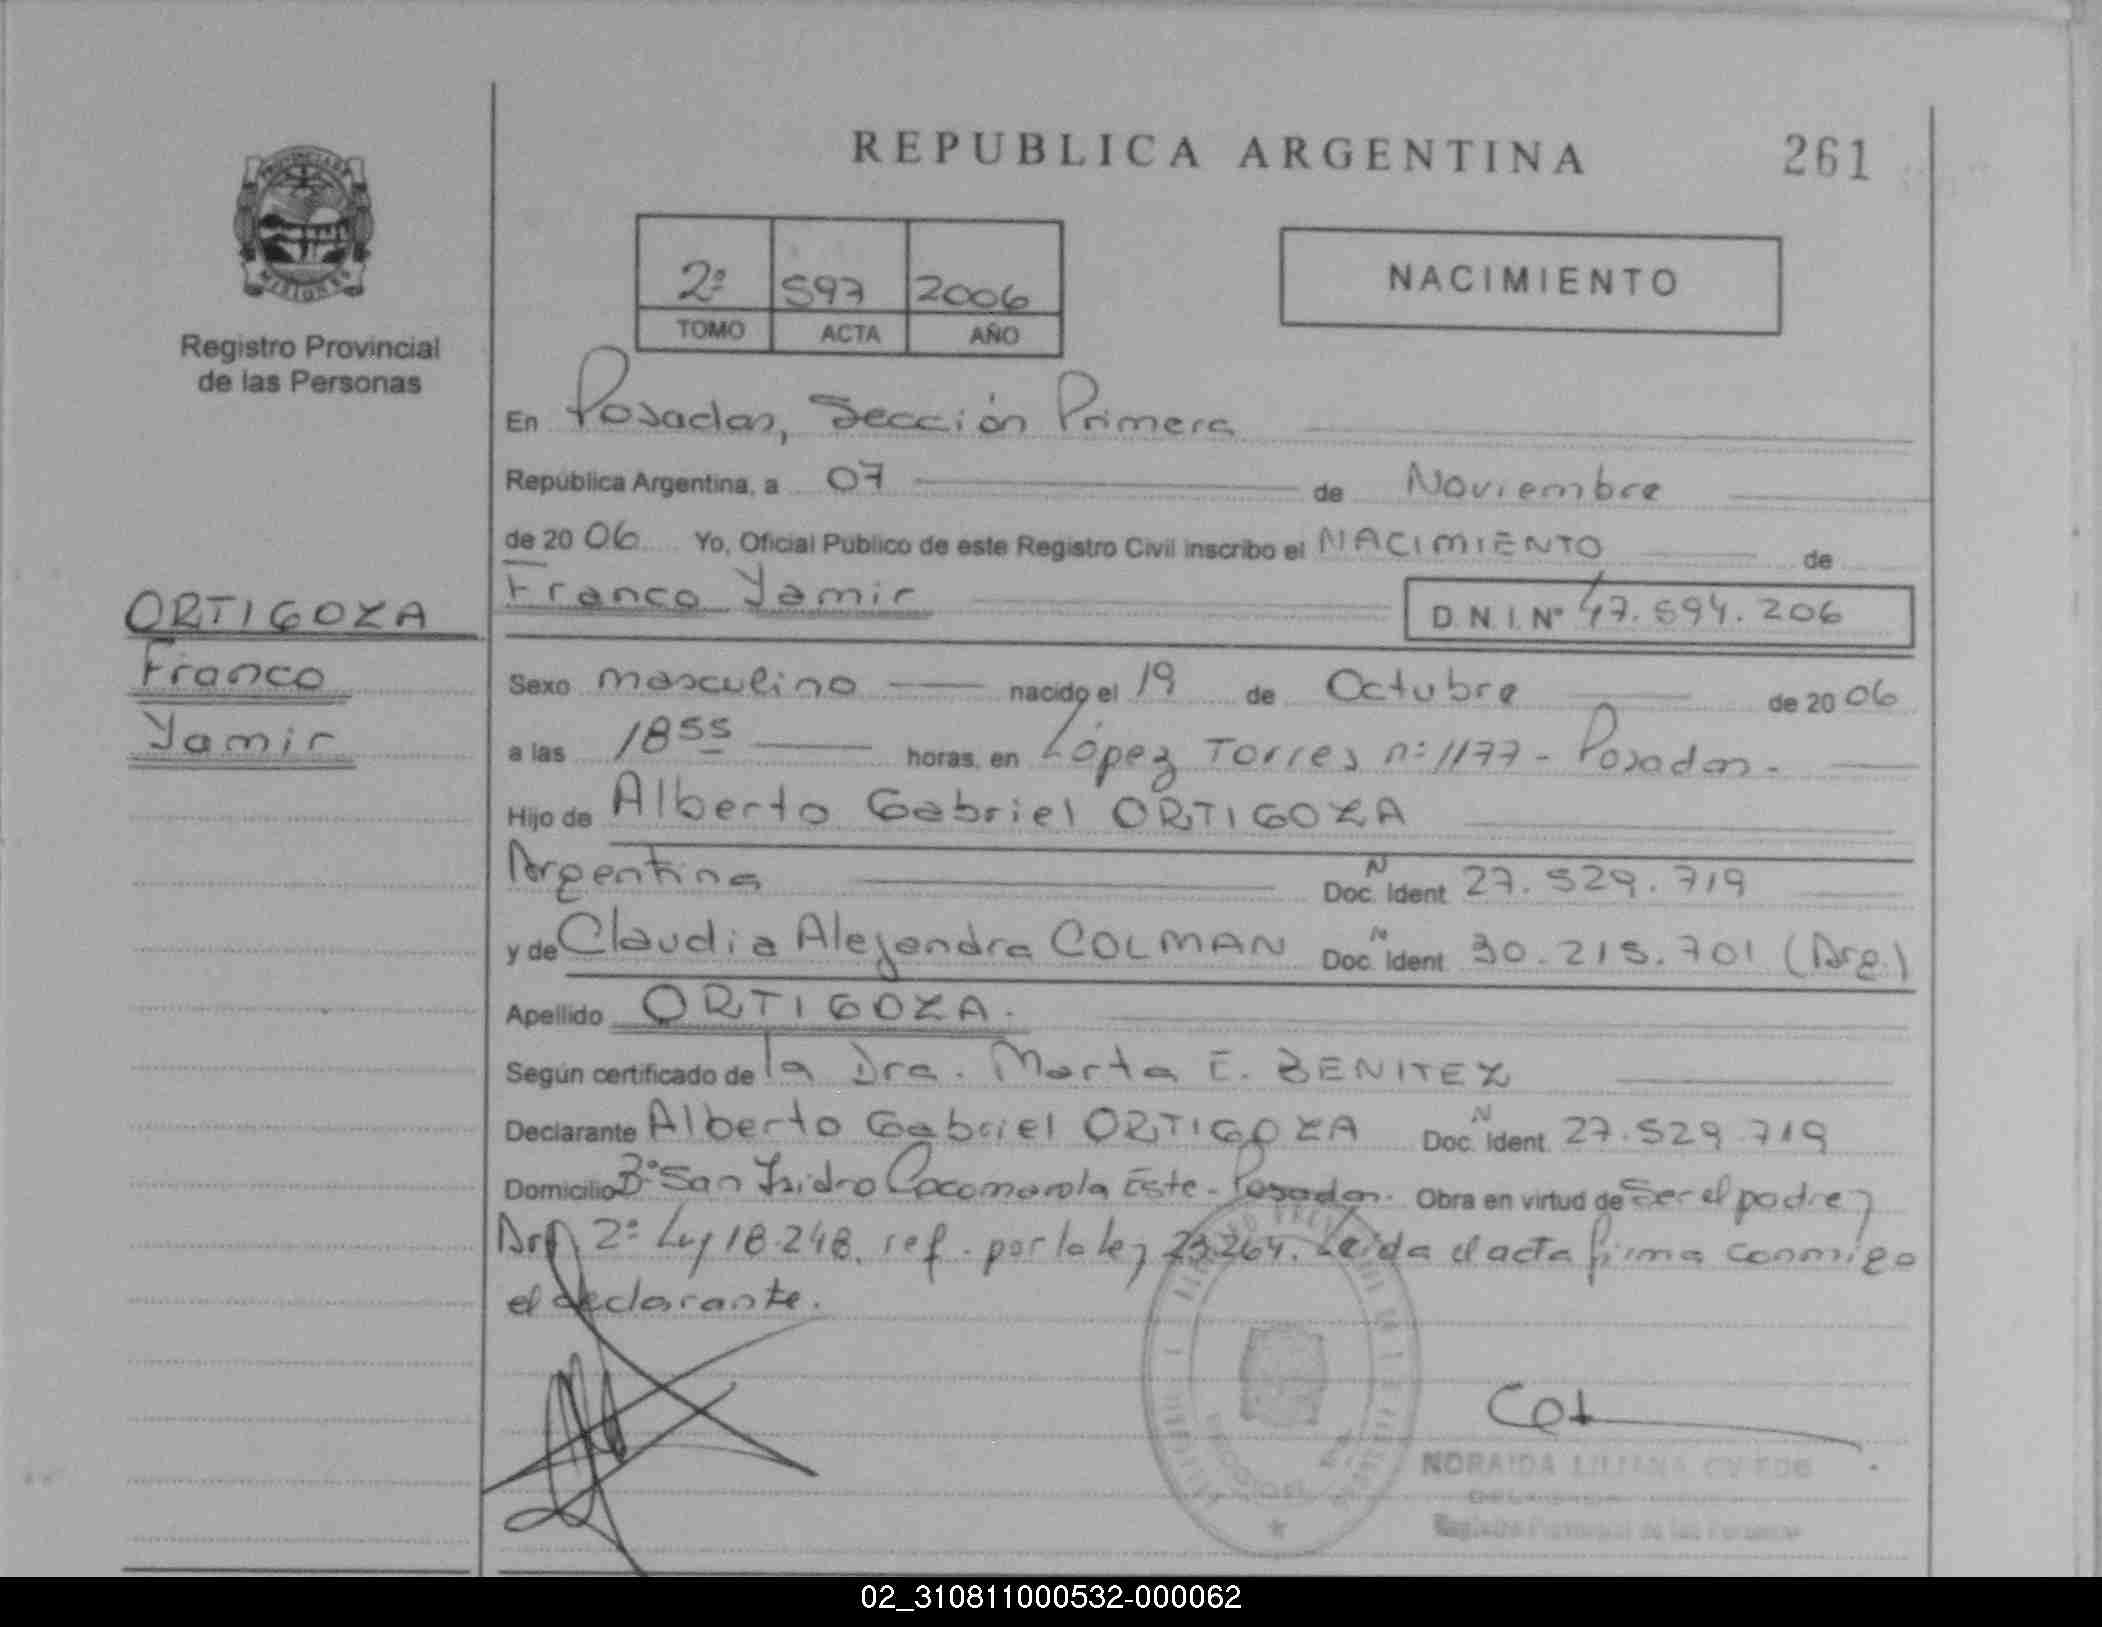 REPUBLICA ARGENTINA
261
PROVINCIA DE
MISIONES
Registro Provincial
de las Personas
2º 597 2006
TOMO ACTA AÑO
NACIMIENTO
En Posadas, Sección Primera
República Argentina, a 07 de Noviembre
de 2006 Yo, Oficial Público de este Registro Civil inscribo el NACIMIENTO de
Franco Yamir
D.N.I. Nº 47.594.206
ORTIGOZA
Franco
Yamir
Sexo masculino nacido el 19 de Octubre de 2006
a las 18 55 horas, en López Torres nº 1177 - Posadas.-
Hijo de Alberto Gabriel ORTIGOZA
Argentina Doc. N Ident 27.529.719
y de Claudia Alejandra COLMAN Doc. N Ident 30.215.701 (Arg.)
Apellido ORTIGOZA.
Según certificado de la Dra. Marta E. BENITEZ
Declarante Alberto Gabriel ORTIGOZA Doc. N Ident. 27.529.719
Domicilio Bº San Isidro Cocomarola Este - Posadas. Obra en virtud de ser el padre y
Art 2º Ley 18.248, ref. por la ley 23.264. Leida el acta firma conmigo
el declarante.
NORAIDA LILIANA OVIEDO
DELEGADA
Registro Provincial de las Personas
02_310811000532-000062